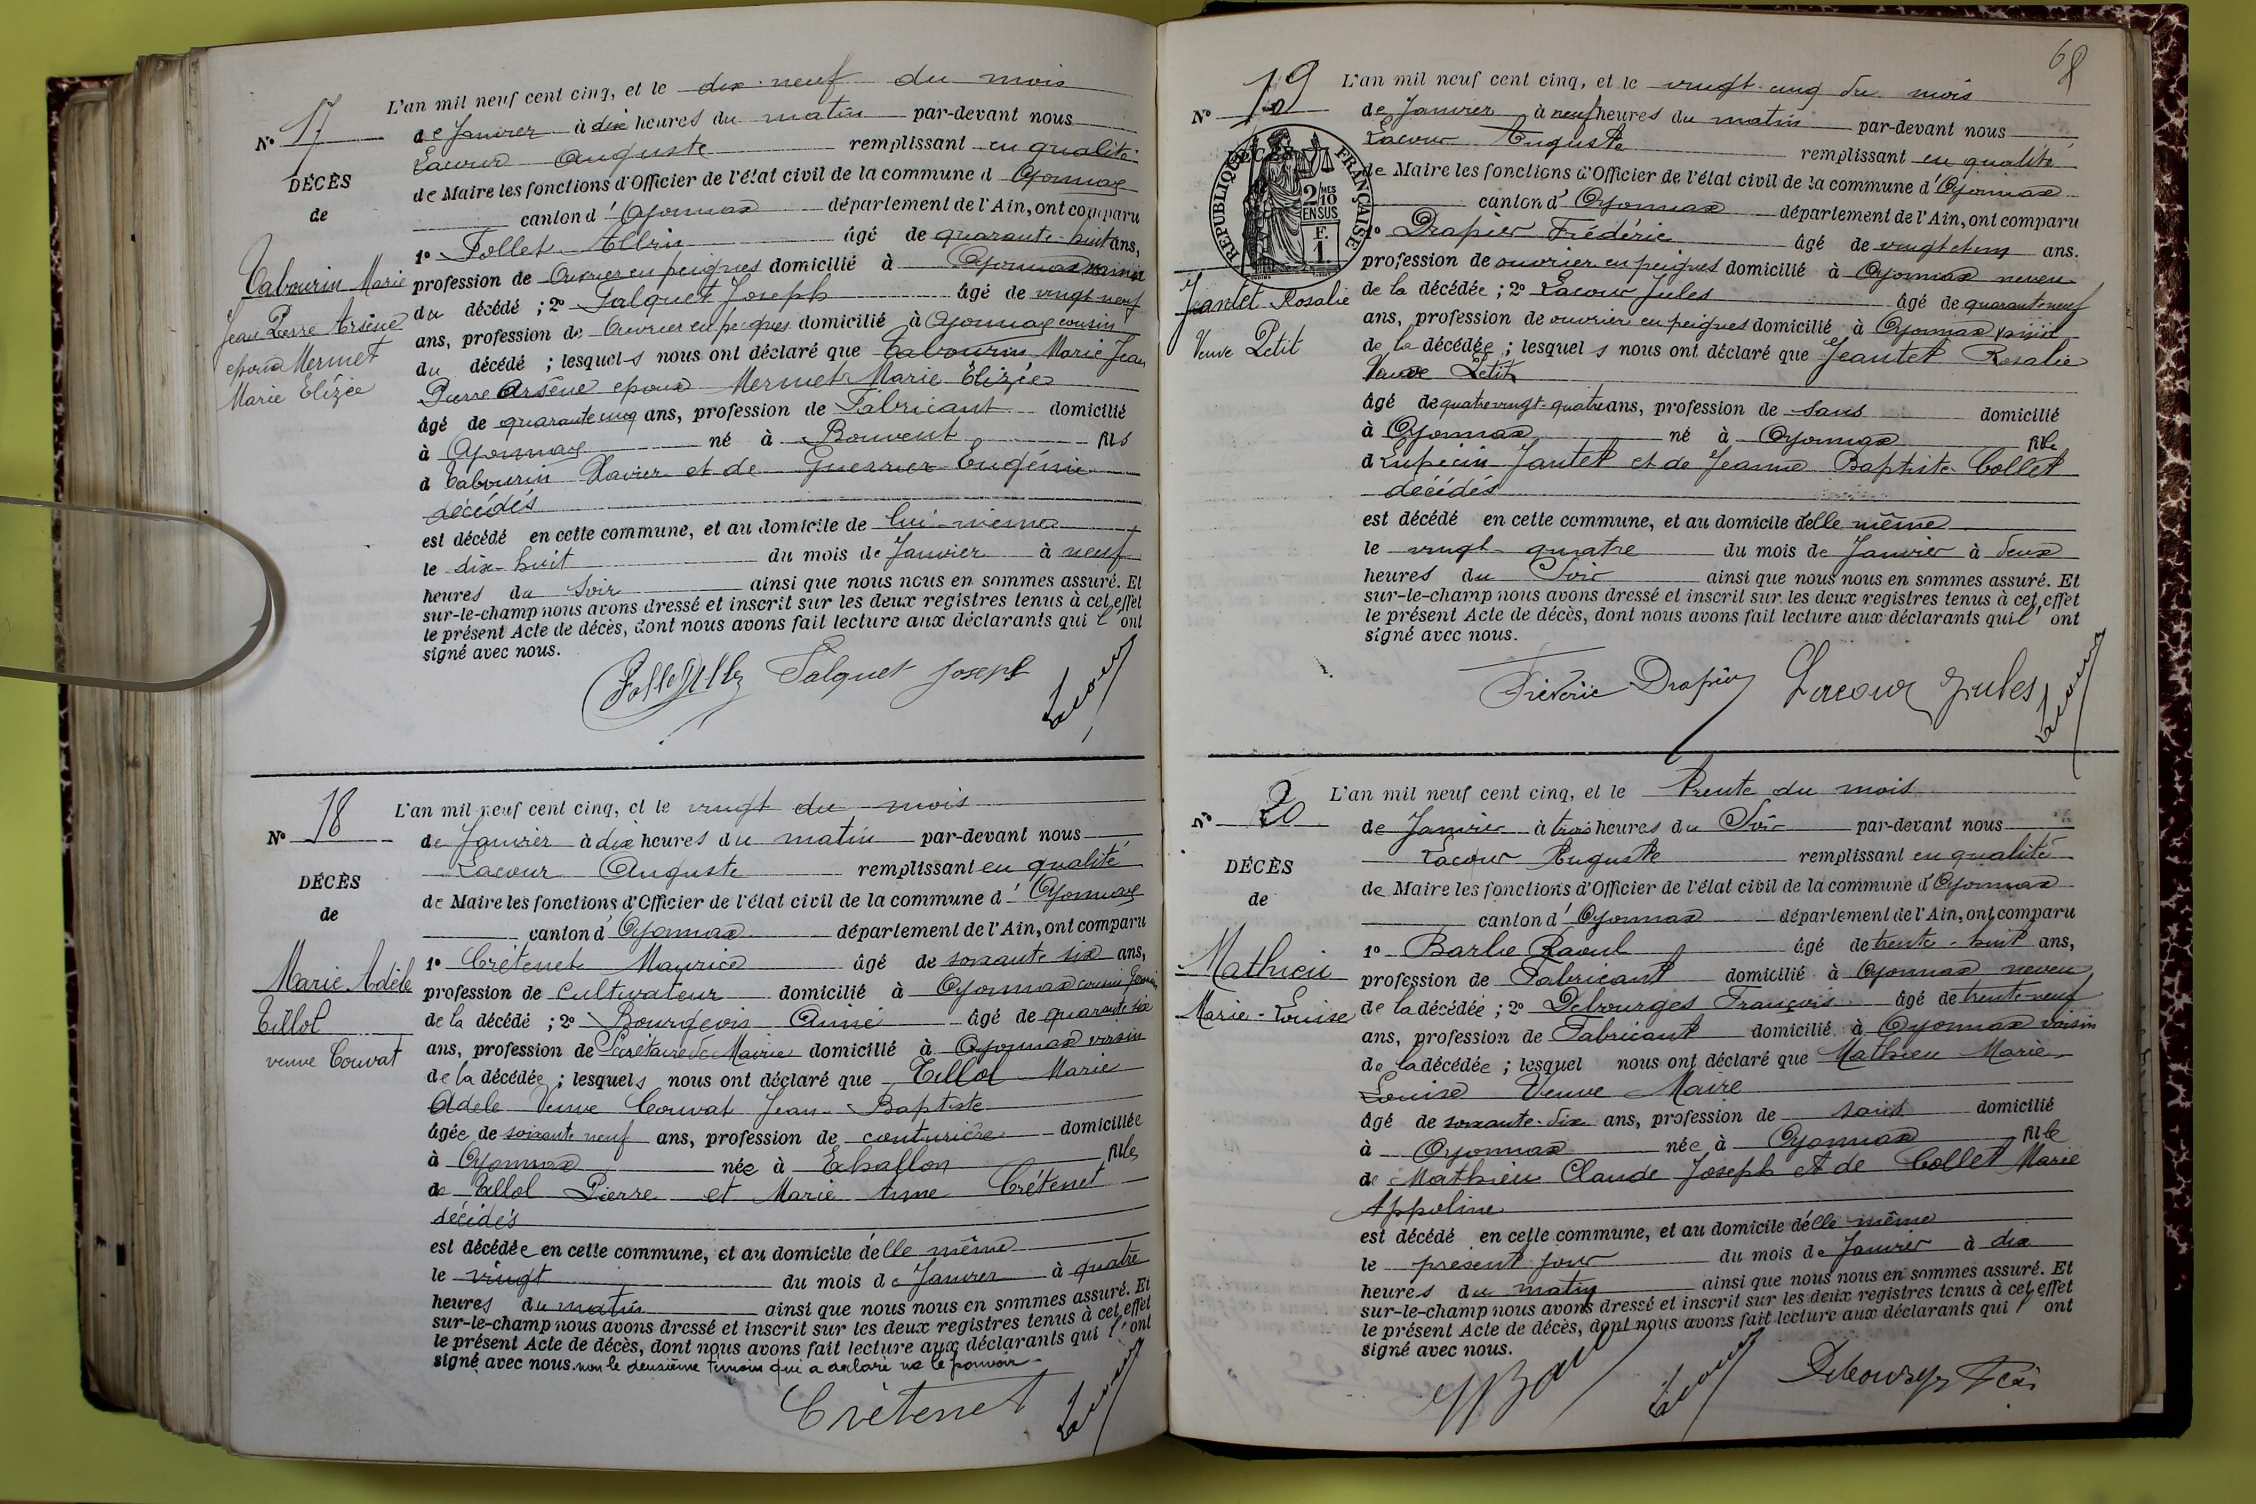 N° 17
DÉCÈS
de
Tabourin Marie
Jean Pierre Arsène
époux Mermet
Marie Elizée
L'an mil neuf cent cinq, et le dix-neuf du mois
de Janvier à dix heures du matin par-devant nous
Lacour Auguste remplissant en qualité
de Maire les fonctions d'Officier de l'état civil de la commune d Oyonnax
canton d' Oyonnax département de l'Ain, ont comparu
1° Follet Albin âgé de quarante-huit ans,
profession de Ouvrier en peignes domicilié à Oyonnax
du décédé ; 2° Salquet Joseph âgé de vingt neuf
ans, profession de Ouvrier en peignes domicilié à Oyonnax cousin
du décédé ; lesquels nous ont déclaré que Tabourin Marie Jean
Pierre Arsène epoux Mermet Marie Elizée
âgé de quarante cinq ans, profession de Fabricant domicilié
à Oyonnax né à Bouvent fils
d Tabourin Xavier et de Guerrier Eugénie
décédés
est décédé en cette commune, et au domicile de lui-même
le dix-huit du mois de Janvier à neuf
heures du Soir ainsi que nous nous en sommes assuré. Et
sur-le-champ nous avons dressé et inscrit sur les deux registres tenus à cet effet
le présent Acte de décès, dont nous avons fait lecture aux déclarants qui l' ont
signé avec nous.
Salquet Joseph Lacour
N° 18
DÉCÈS
de
Marie Adèle
Tillol
veuve Couvat
L'an mil neuf cent cinq, et le vingt du mois
de Janvier à dix heures du matin par-devant nous
Lacour Auguste remplissant en qualité
de Maire les fonctions d'Officier de l'état civil de la commune d' Oyonnax
canton d' Oyonnax département de l'Ain, ont comparu
1° Crétenet Maurice âgé de soixante six ans,
profession de Cultivateur domicilié à Oyonnax cousin germain
de la décédé ; 2° Bourgeois Aimé âgé de quarante six
ans, profession de Secrétaire de Mairie domicilié à Oyonnax voisin
de la décédée ; lesquels nous ont déclaré que Tillol Marie
Adèle Veuve Couvat Jean-Baptiste
âgée de soixante neuf ans, profession de couturière domiciliée
à Oyonnax née à Echallon fille
de Tillol Pierre et Marie Anne Crétenet
décédés
est décédée en cette commune, et au domicile d'elle même
le vingt du mois de Janvier à quatre
heures du matin ainsi que nous nous en sommes assuré. Et
sur-le-champ nous avons dressé et inscrit sur les deux registres tenus à cet effet
le présent Acte de décès, dont nous avons fait lecture aux déclarants qui l'ont
signé avec nous. non le deuxième témoin qui a déclaré ne le pouvoir
Crétenet Lacour
68
N° 19
DÉCÈS
RÉPUBLIQUE FRANÇAISE
2/10 EN SUS
F. 1.
Jeantet Rosalie
Veuve Petit
L'an mil neuf cent cinq, et le vingt-cinq du mois
de Janvier à neuf heures du matin par-devant nous
Lacour Auguste remplissant en qualité
de Maire les fonctions d'Officier de l'état civil de la commune d'Oyonnax
canton d' Oyonnax département de l'Ain, ont comparu
1° Drapier Frédéric âgé de vingt et un ans.
profession de ouvrier en peignes domicilié à Oyonnax neveu
de la décédée ; 2° Lacour Jules âgé de quarante neuf
ans, profession de ouvrier en peignes domicilié à Oyonnax
de la décédée ; lesquel s nous ont déclaré que Jeantet Rosalie
Veuve Petit
âgé de quatre vingt-quatre ans, profession de sans domicilié
à Oyonnax né à Oyonnax fille
d Lupicin Jantet et de Jeanne Baptiste Collet
décédés
est décédé en cette commune, et au domicile d'elle même
le vingt-quatre du mois de Janvier à deux
heures du Soir ainsi que nous nous en sommes assuré. Et
sur-le-champ nous avons dressé et inscrit sur les deux registres tenus à cet effet
le présent Acte de décès, dont nous avons fait lecture aux déclarants qui l' ont
signé avec nous.
Frédéric Drapier Lacour Jules Lacour
N° 20
DÉCÈS
de
Mathieu
Marie-Louise
L'an mil neuf cent cinq, et le trente du mois
de Janvier à trois heures du Soir par-devant nous
Lacour Auguste remplissant en qualité
de Maire les fonctions d'Officier de l'état civil de la commune d'Oyonnax
canton d' Oyonnax département de l'Ain, ont comparu
1° Barbe Raoul âgé de trente-huit ans,
profession de Fabricant domicilié à Oyonnax neveu
de la décédée ; 2° Debourges François âgé de trente-neuf
ans, profession de Fabricant domicilié à Oyonnax voisin
de la décédée ; lesquel nous ont déclaré que Mathieu Marie
Louise Veuve Maire
âgé de soixante-dix ans, profession de sans domicilié
à Oyonnax née à Oyonnax fille
de Mathieu Claude Joseph et de Collet Marie
Appoline
est décédé en cette commune, et au domicile d'elle même
le présent jour du mois de Janvier à dix
heures du matin ainsi que nous nous en sommes assuré. Et
sur-le-champ nous avons dressé et inscrit sur les deux registres tenus à cet effet
le présent Acte de décès, dont nous avons fait lecture aux déclarants qui l' ont
signé avec nous.
Lacour